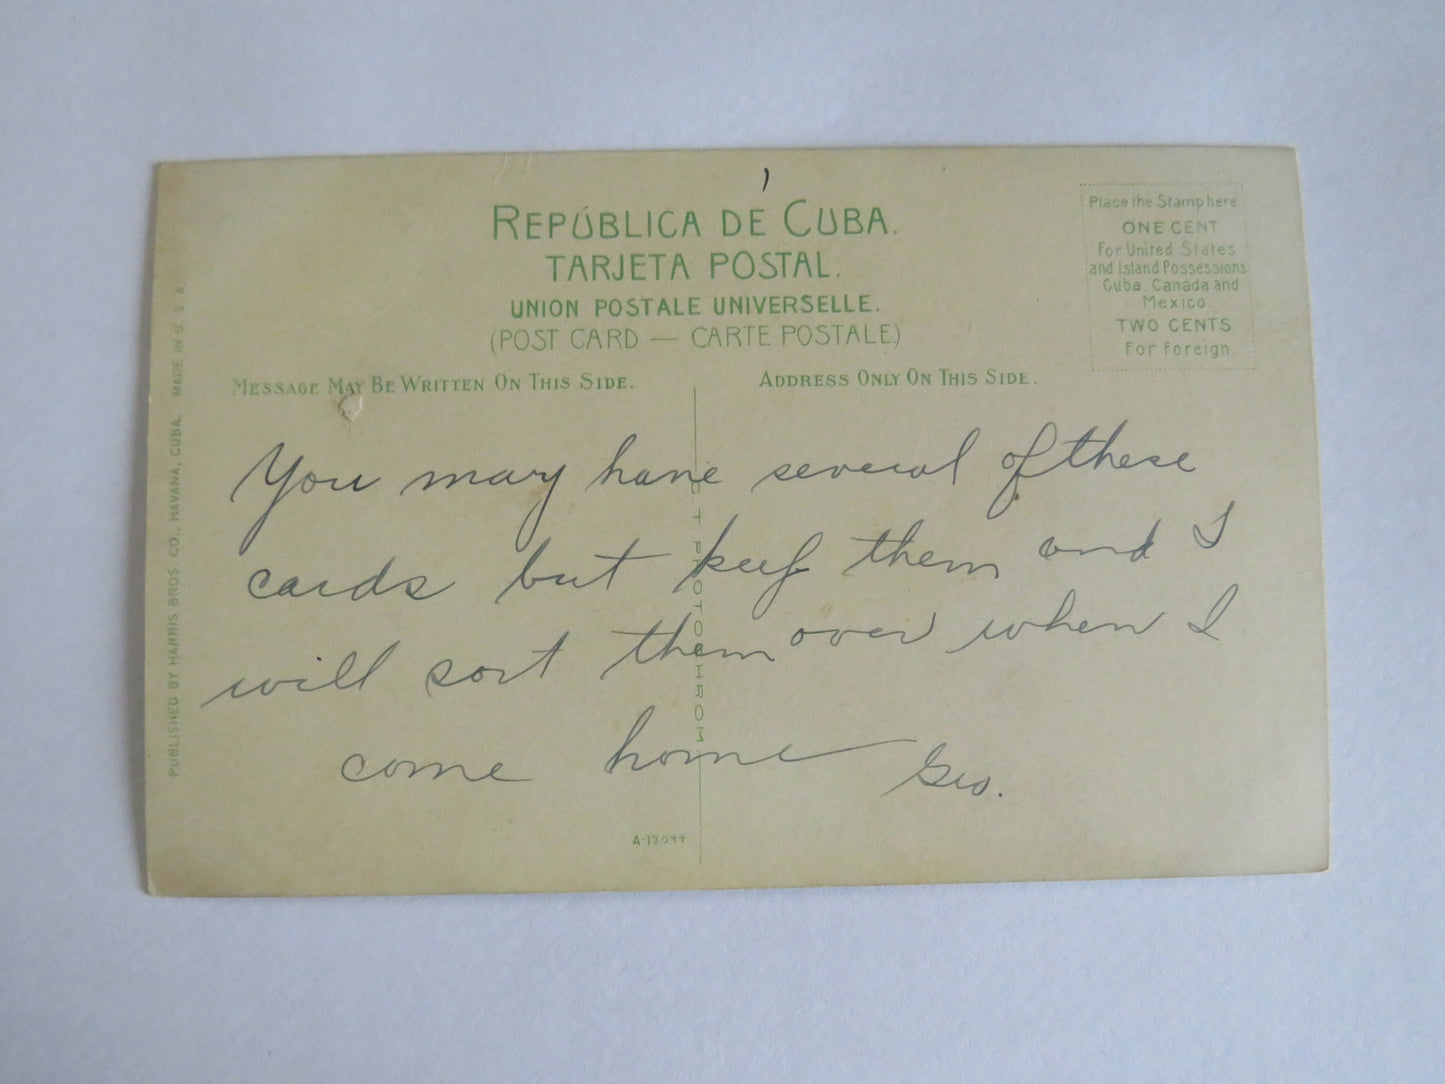 REPÚBLICA DE CUBA.
TARJETA POSTAL.
UNION POSTALE UNIVERSELLE.
(POST CARD — CARTE POSTALE)
Place the Stamp here
ONE CENT
For United States
and Island Possessions
Cuba, Canada and
Mexico
TWO CENTS
For Foreign.
MESSAGE MAY BE WRITTEN ON THIS SIDE.
ADDRESS ONLY ON THIS SIDE.
You may have several of these
cards but keep them and I
will sort them over when I
come home
Geo.
C.T. PHOTOCHROM
PUBLISHED BY HARRIS BROS. CO., HAVANA, CUBA. MADE IN U. S. A.